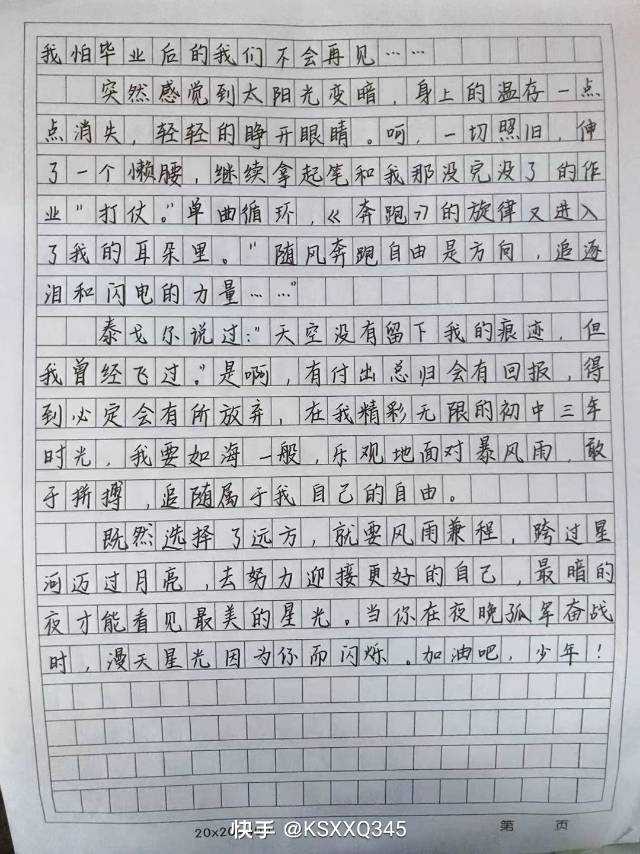 我怕毕业后的我们不会再见……
突然感觉到太阳光变暗，身上的温存一点
点消失，轻轻的睁开眼睛。呵，一切照旧，伸
了一个懒腰，继续拿起笔和我那没完没了的作
业“打仗。”单曲循环，《奔跑》的旋律又进入
了我的耳朵里。“随风奔跑自由是方向，追逐
泪和闪电的力量……”
泰戈尔说过：“天空没有留下我的痕迹，但
我曾经飞过。”是啊，有付出总归会有回报，得
到必定会有所放弃，在我精彩无限的初中三年
时光，我要如海一般，乐观地面对暴风雨，敢
于拼搏，追随属于我自己的自由。
既然选择了远方，就要风雨兼程，跨过星
河迈过月亮，去努力迎接更好的自己，最暗的
夜才能看见最美的星光。当你在夜晚孤军奋战
时，漫天星光因为你而闪烁。加油吧，少年！
20×20
快手 @KSXXQ345
第 页